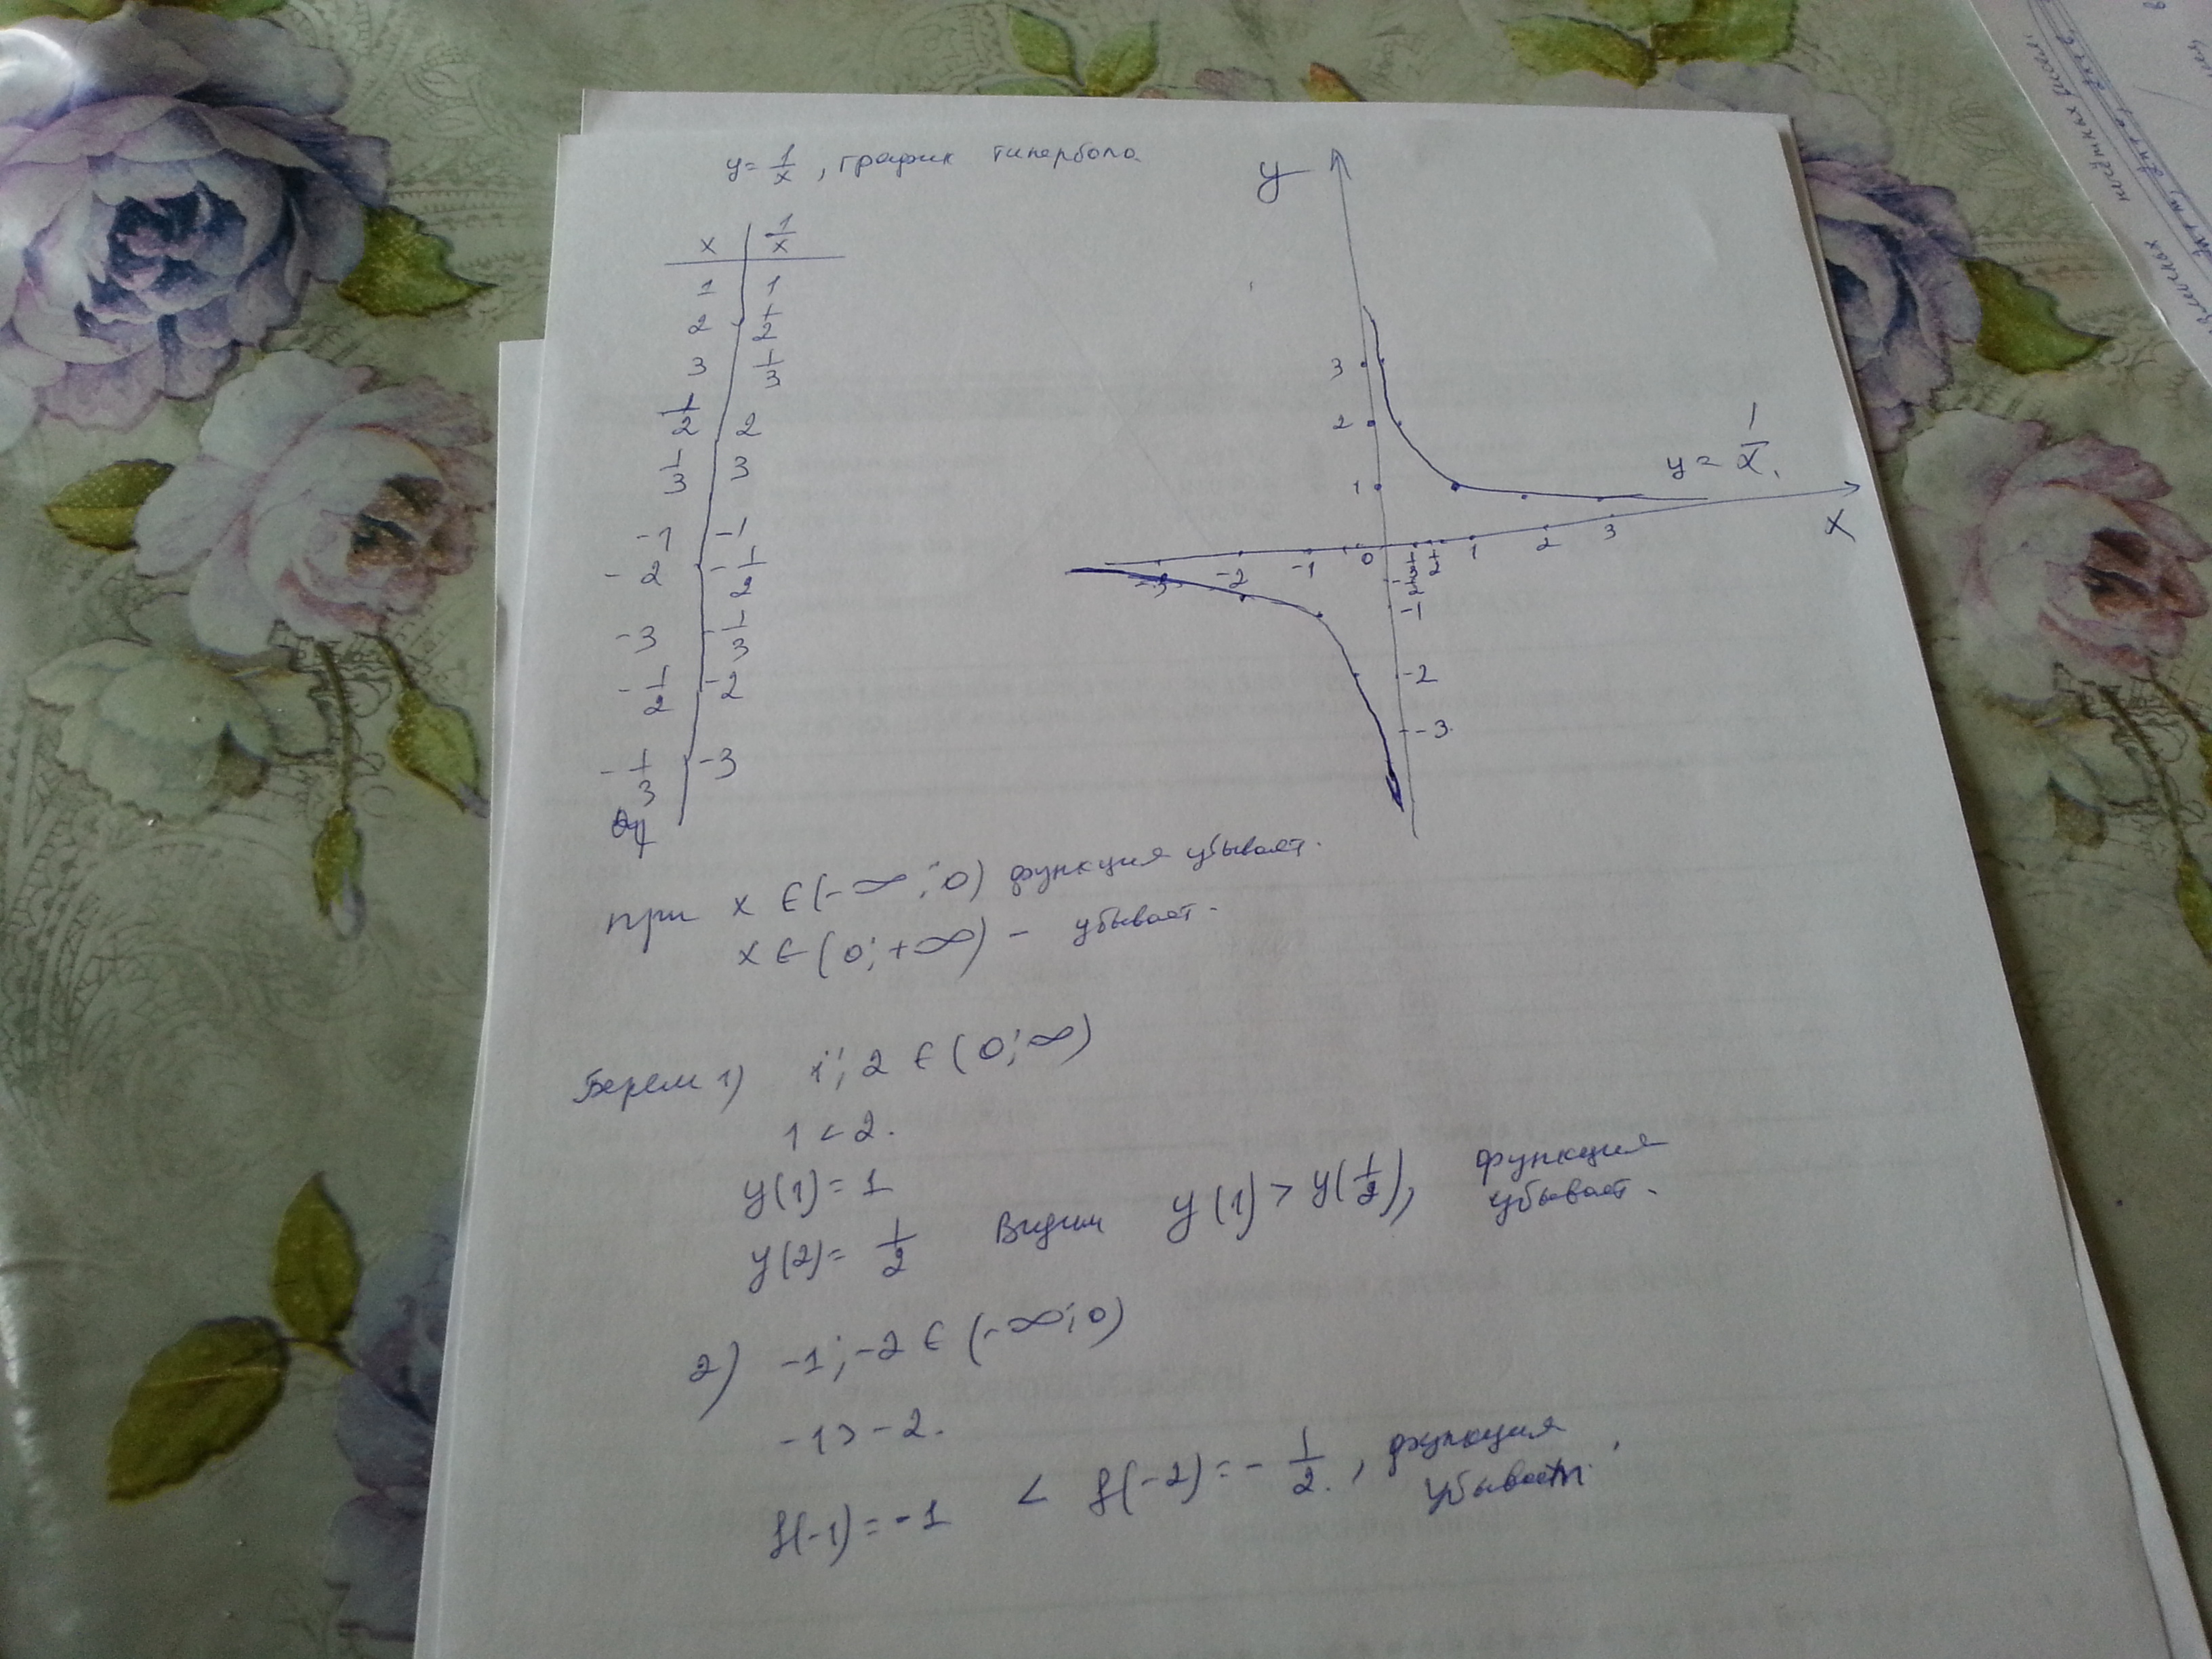 y = 1/x , график гипербола
x | 1/x
1 | 1
2 | 1/2
3 | 1/3
1/2 | 2
1/3 | 3
-1 | -1
-2 | -1/2
-3 | -1/3
-1/2 | -2
-1/3 | -3
y
3
2
1
y = 1/x.
x
-3 -2 -1 0 1 2 3
-1
-2
-3
при x ∈ (-∞; 0) функция убывает.
x ∈ (0; +∞) - убывает.
Берем 1) 1; 2 ∈ (0; ∞)
1 < 2.
y(1) = 1
y(2) = 1/2 Видим y(1) > y(1/2), функция убывает.
2) -1; -2 ∈ (-∞; 0)
-1 > -2.
f(-1) = -1 < f(-2) = -1/2. , функция убывает.